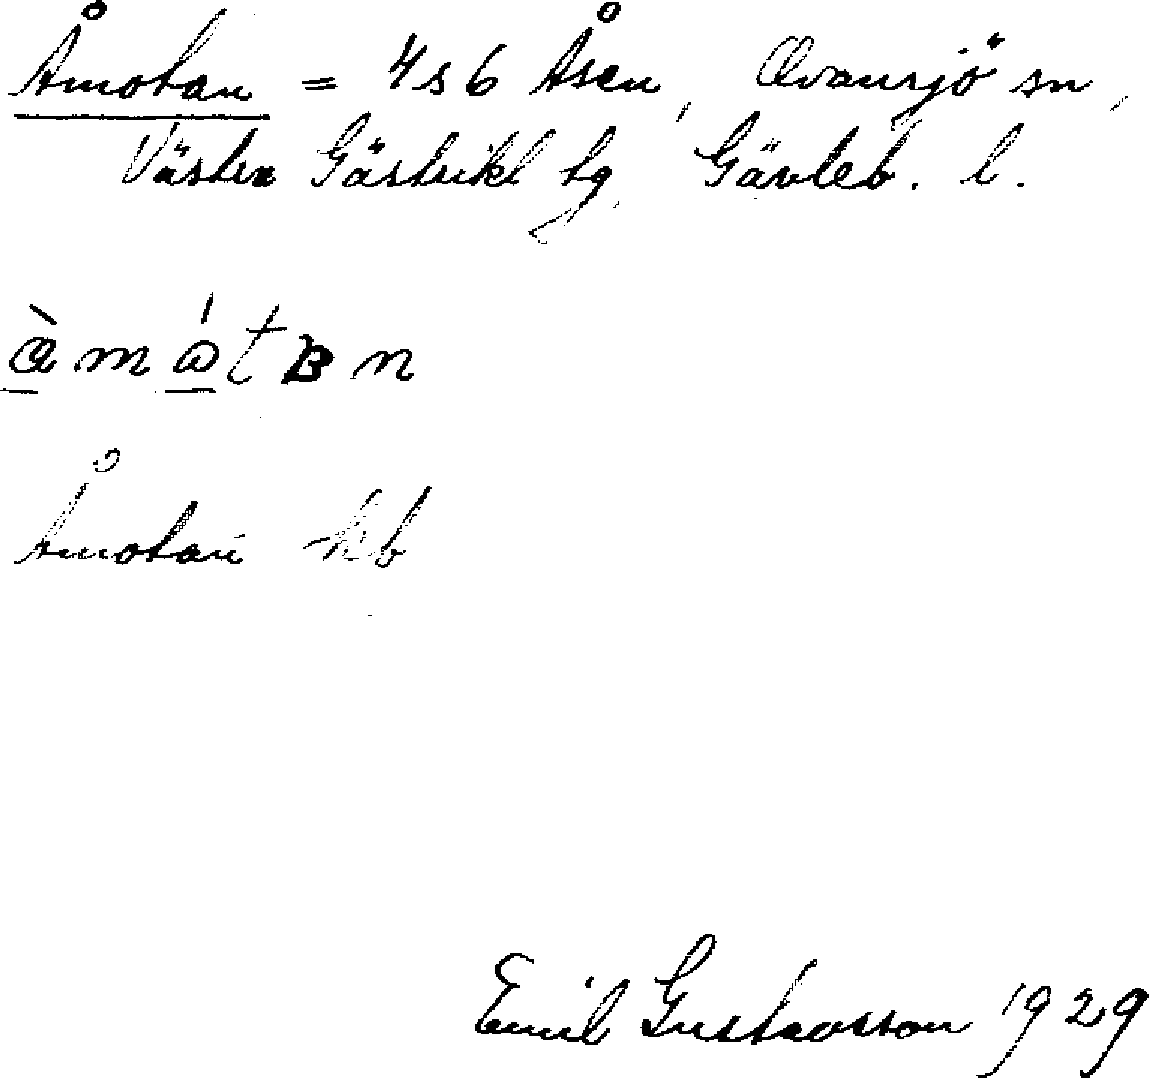 Åmotan = 4s6 Åsen, Ovansjö sn,
Västra Gästrikl tg, Gävleb. l.
Åmotan kb
Emil Gustavsson 1929